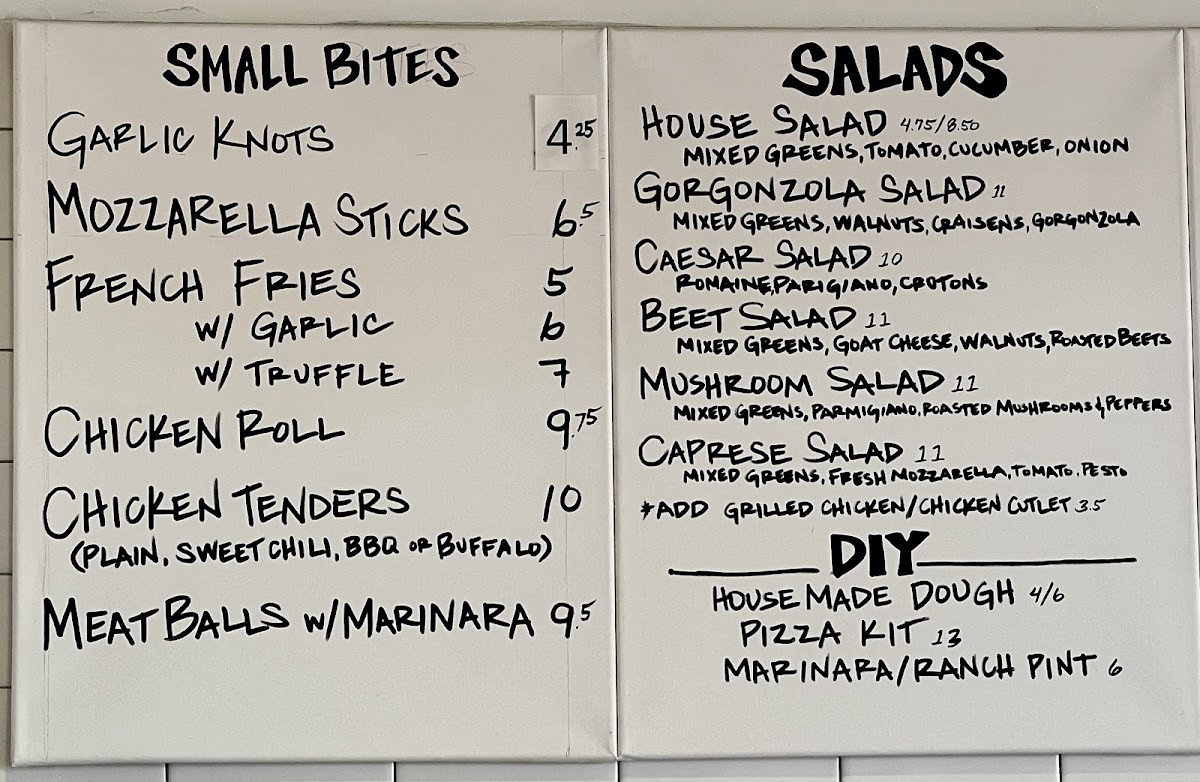 SMALL BITES
GARLIC KNOTS 4.25
MOZZARELLA STICKS 6.5
FRENCH FRIES 5
W/ GARLIC 6
W/ TRUFFLE 7
CHICKEN ROLL 9.75
CHICKEN TENDERS 10
(PLAIN, SWEET CHILI, BBQ OR BUFFALO)
MEATBALLS W/MARINARA 9.5
SALADS
HOUSE SALAD 4.75/8.50
MIXED GREENS, TOMATO, CUCUMBER, ONION
GORGONZOLA SALAD 11
MIXED GREENS, WALNUTS, CRAISENS, GORGONZOLA
CAESAR SALAD 10
ROMAINE, PARIGIANO, CROTONS
BEET SALAD 11
MIXED GREENS, GOAT CHEESE, WALNUTS, ROASTED BEETS
MUSHROOM SALAD 11
MIXED GREENS, PARMIGIANO, ROASTED MUSHROOMS & PEPPERS
CAPRESE SALAD 11
MIXED GREENS, FRESH MOZZARELLA, TOMATO, PESTO
*ADD GRILLED CHICKEN/CHICKEN CUTLET 3.5
DIY
HOUSE MADE DOUGH 4/6
PIZZA KIT 13
MARINARA/RANCH PINT 6